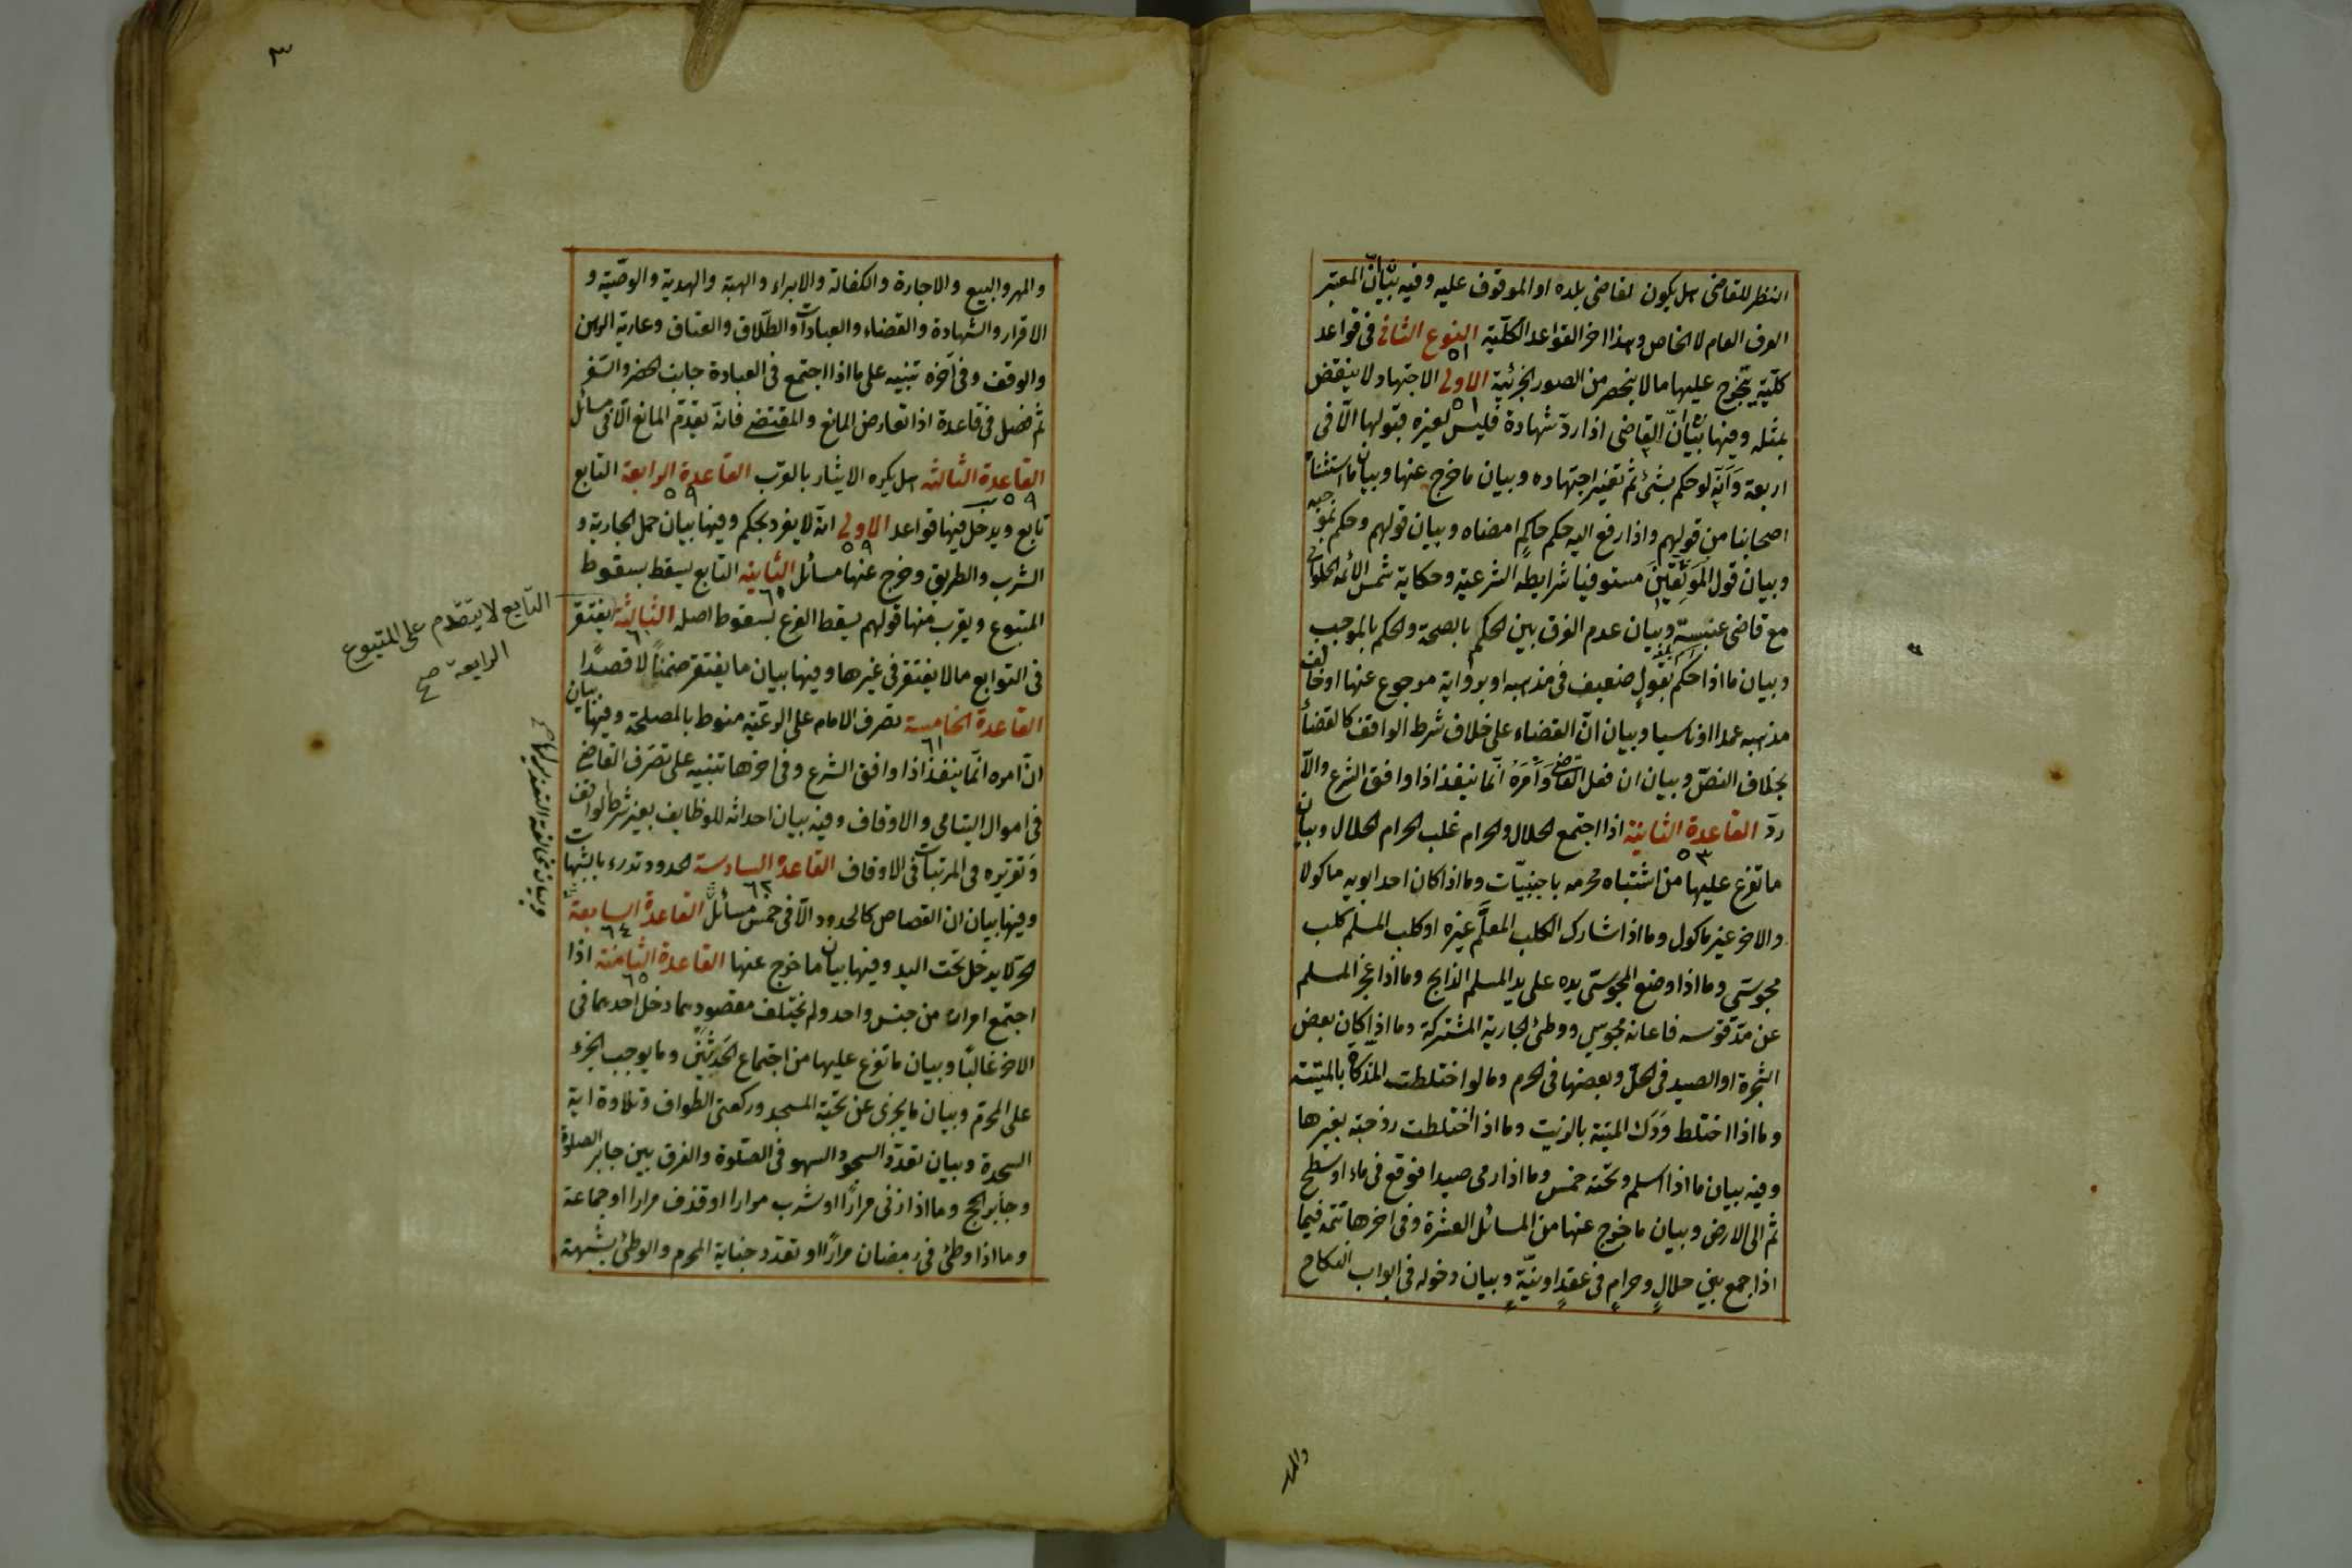 النظر للقاضى هل يكون لقاضى بلده او الموقوف عليه وفيه بيان ان المعتبر
العرف العام لا الخاص وهذا اخر القواعد الكلية النوع الثانى فى قواعد
كلية يتخرج عليها ما لا ينحصر من الصور الجزئية الاولى الاجتهاد لا ينقض
٥١
بمثله وفيها بيان ان القاضى اذا رد شهادة فليس لغيره قبولها الا فى
٥١
اربعة وانه لو حكم بشئ ثم تغير اجتهاده وبيان ما خرج عنها وبيان ما استثناه
اصحابنا من قولهم واذا رفع اليه حكم حاكم امضاه وبيان قولهم وحكم بموجبه
وبيان قول الموثقين مستوفيا شرايطه الشرعية وحكاية شمس الائمة الحلوانى
مع قاضى عنبسة وبيان عدم الفرق بين الحكم بالصحة والحكم بالموجب
وبيان ما اذا حكم بقول ضعيف فى مذهبه او برواية مرجوع عنها او خالف
مذهبه عمدا او ناسيا وبيان ان القضاء على خلاف شرط الواقف كالقضاء
بخلاف النص وبيان ان فعل القاضى وامره انما ينفذ اذا وافق الشرع والا
رد القاعدة الثانية اذا اجتمع الحلال والحرام غلب الحرام الحلال وبيان
٥٣
ما تفرع عليها من اشتباه محرمه باجنبيات وما اذا كان احد ابويه ماكولا
والاخر غير ماكول وما اذا شارك الكلب المعلم غيره او كلب المسلم كلب
مجوسى وما اذا وضع المجوسى يده على يد المسلم الذابح وما اذا عجز المسلم
عن مد قوسه فاعانه مجوسي ووطئ الجارية المشتركة وما اذا كان بعض
الشجرة او الصيد فى الحل وبعضها فى الحرم وما لو اختلطت المذكاة بالميتة
وما اذا اختلط ودك الميتة بالزيت وما اذا اختلطت زوجته بغيرها
وفيه بيان ما اذا اسلم وتحته خمس وما اذا رمى صيدا فوقع فى ماء او سطح
ثم الى الارض وبيان ما خرج عنها من المسائل العشرة وفى اخرها تتمه فيما
اذا جمع بين حلال وحرام فى عقد او نية وبيان دخوله فى ابواب النكاح
والمهر
٣
والمهر والبيع والاجارة والكفالة والابراء والهبة والهدية والوصية و
الاقرار والشهادة والقضاء والعبادات والطلاق والعتاق وعارية الرهن
والوقف وفى آخره تنبيه على ما اذا اجتمع فى العبادة جانب الحضر والسفر
ثم فصل فى قاعدة اذا تعارض المانع والمقتضى فانه يقدم المانع الا فى مسائل
القاعدة الثالثه هل يكره الايثار بالقرب القاعدة الرابعة التابع
٥٩ ٥٩
تابع ويدخل فيها قواعد الاولى انه لا يفرد بحكم وفيها بيان حمل الجارية و
٥٩
الشرب والطريق وخرج عنها مسائل الثانيه التابع يسقط بسقوط
المتبوع ويقرب منها قولهم يسقط الفرع بسقوط اصله الثالثة يغتفر
٦٠
التابع لا يتقدم على المتبوع
الرابعة صح
فى التوابع ما لا يغتفر فى غيرها وفيها بيان ما يغتفر ضمنا لا قصدا
القاعدة الخامسة تصرف الامام على الرعية منوط بالمصلحة وفيها بيان
٦١
ان امره انما ينفذ اذا وافق الشرع وفى اخرها تنبيه على تصرف القاضى
فى اموال اليتامى والاوقاف وفيه بيان احداثه للوظايف بغير شرط الواقف
وتقريره فى المرتبات فى الاوقاف القاعدة السادسة الحدود تدرء بالشبهات
٦٢
وفيها بيان ان القصاص كالحدود الا فى خمس مسائل القاعدة السابعة
٦٤
الحر لا يدخل تحت اليد وفيها بيان ما خرج عنها القاعدة الثامنة اذا
٦٥
اجتمع امران من جنس واحد ولم يختلف مقصودهما دخل احدهما فى
الاخر غالبا وبيان ما تفرع عليها من اجتماع الحدثين وما يوجب الجزء
على المحرم وبيان ما يجزى عن تحية المسجد وركعتى الطواف وتلاوة اية
السجدة وبيان تعدد السجود السهو فى الصلوة والفرق بين جابر الصلوة
وجابر الحج وما اذا زنى مرارا او شرب مرارا او قذف مرارا او جماعة
وما اذا وطئ فى رمضان مرارا او تعدد جناية المحرم والوطئ بشبهة